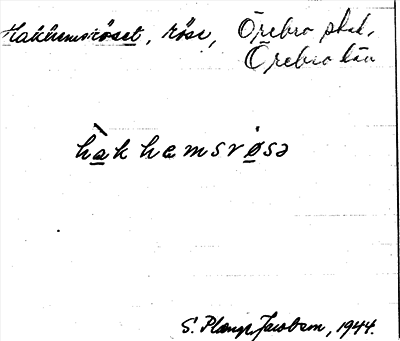 Hakhemsröset, röse, Örebro stad,
Örebro län
hàkhemsrø̀sə
S. Plange Jacobson, 1944.